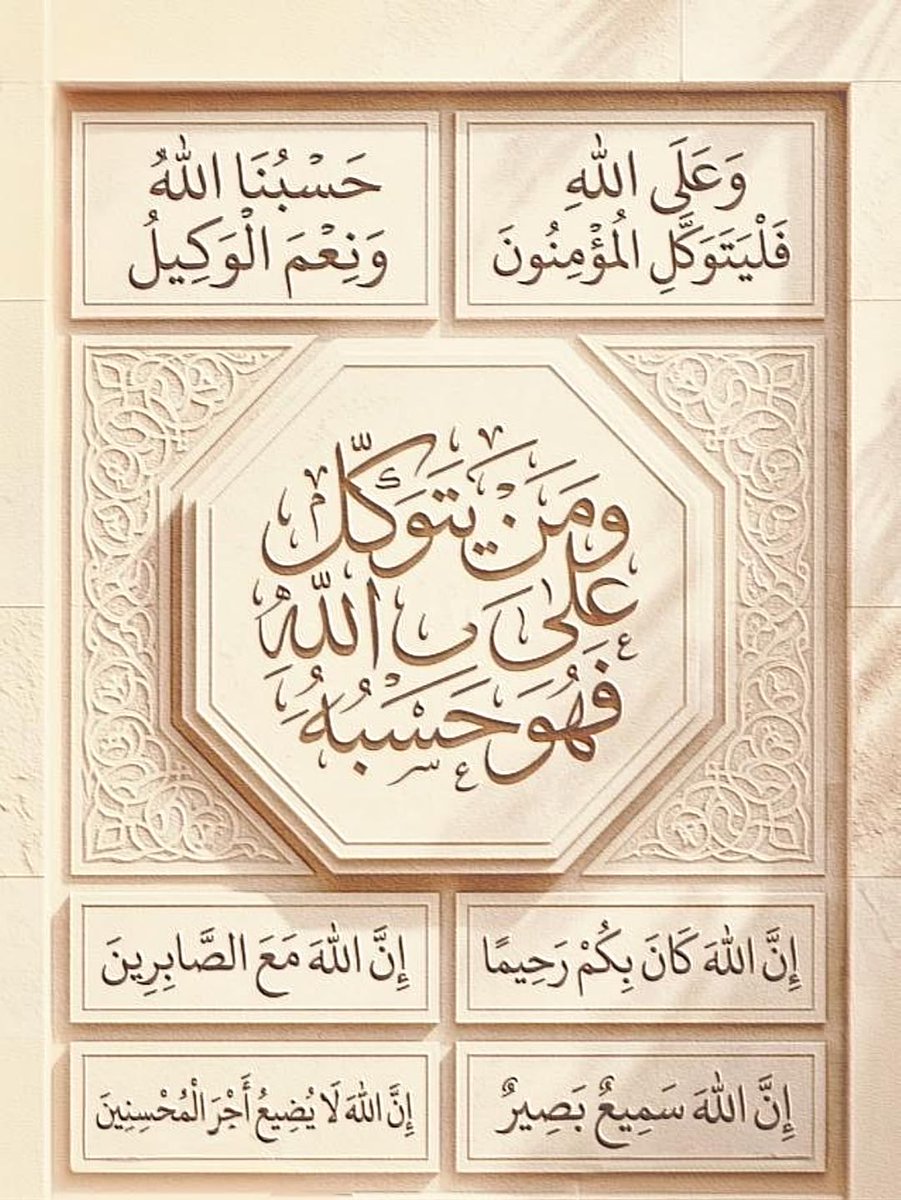 وَعَلَى اللهِ
فَلْيَتَوَكَّلِ الْمُؤْمِنُونَ
حَسْبُنَا اللهُ
وَنِعْمَ الْوَكِيلُ
وَمَنْ يَتَوَكَّلْ
عَلَى اللَّهِ
فَهُوَ حَسْبُهُ
إِنَّ اللهَ كَانَ بِكُمْ رَحِيمًا
إِنَّ اللهَ مَعَ الصَّابِرِينَ
إِنَّ اللهَ سَمِيعٌ بَصِيرٌ
إِنَّ اللهَ لَا يُضِيعُ أَجْرَ الْمُحْسِنِينَ